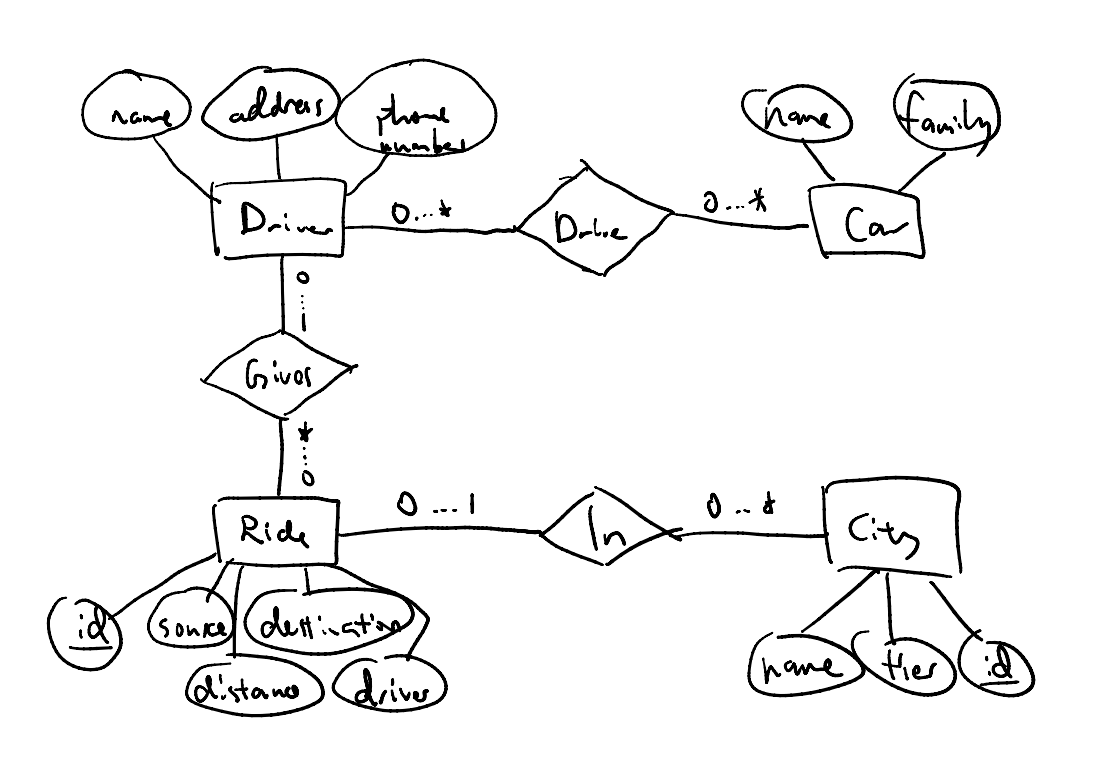 name
address
phone
number
name
family
Driver
0...*
Drive
0...*
Car
0
...
1
Gives
*
...
0
Ride
0...1
In
0...*
City
id
source
destination
distance
driver
name
tier
id